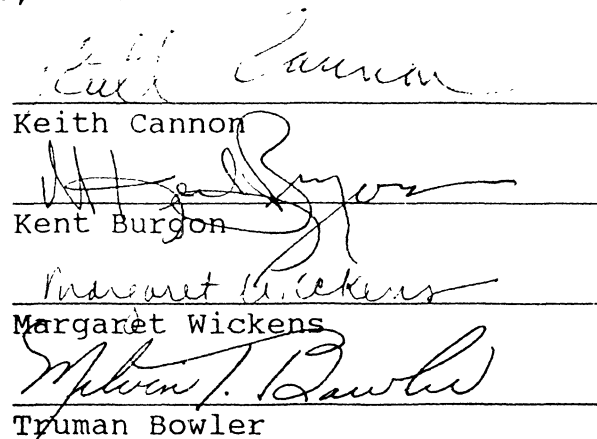 Keith Cannon
Keith Cannon
Burgon
Kent Burgon
Margaret Wickens
Margaret Wickens
Melvin T. Bowler
Truman Bowler